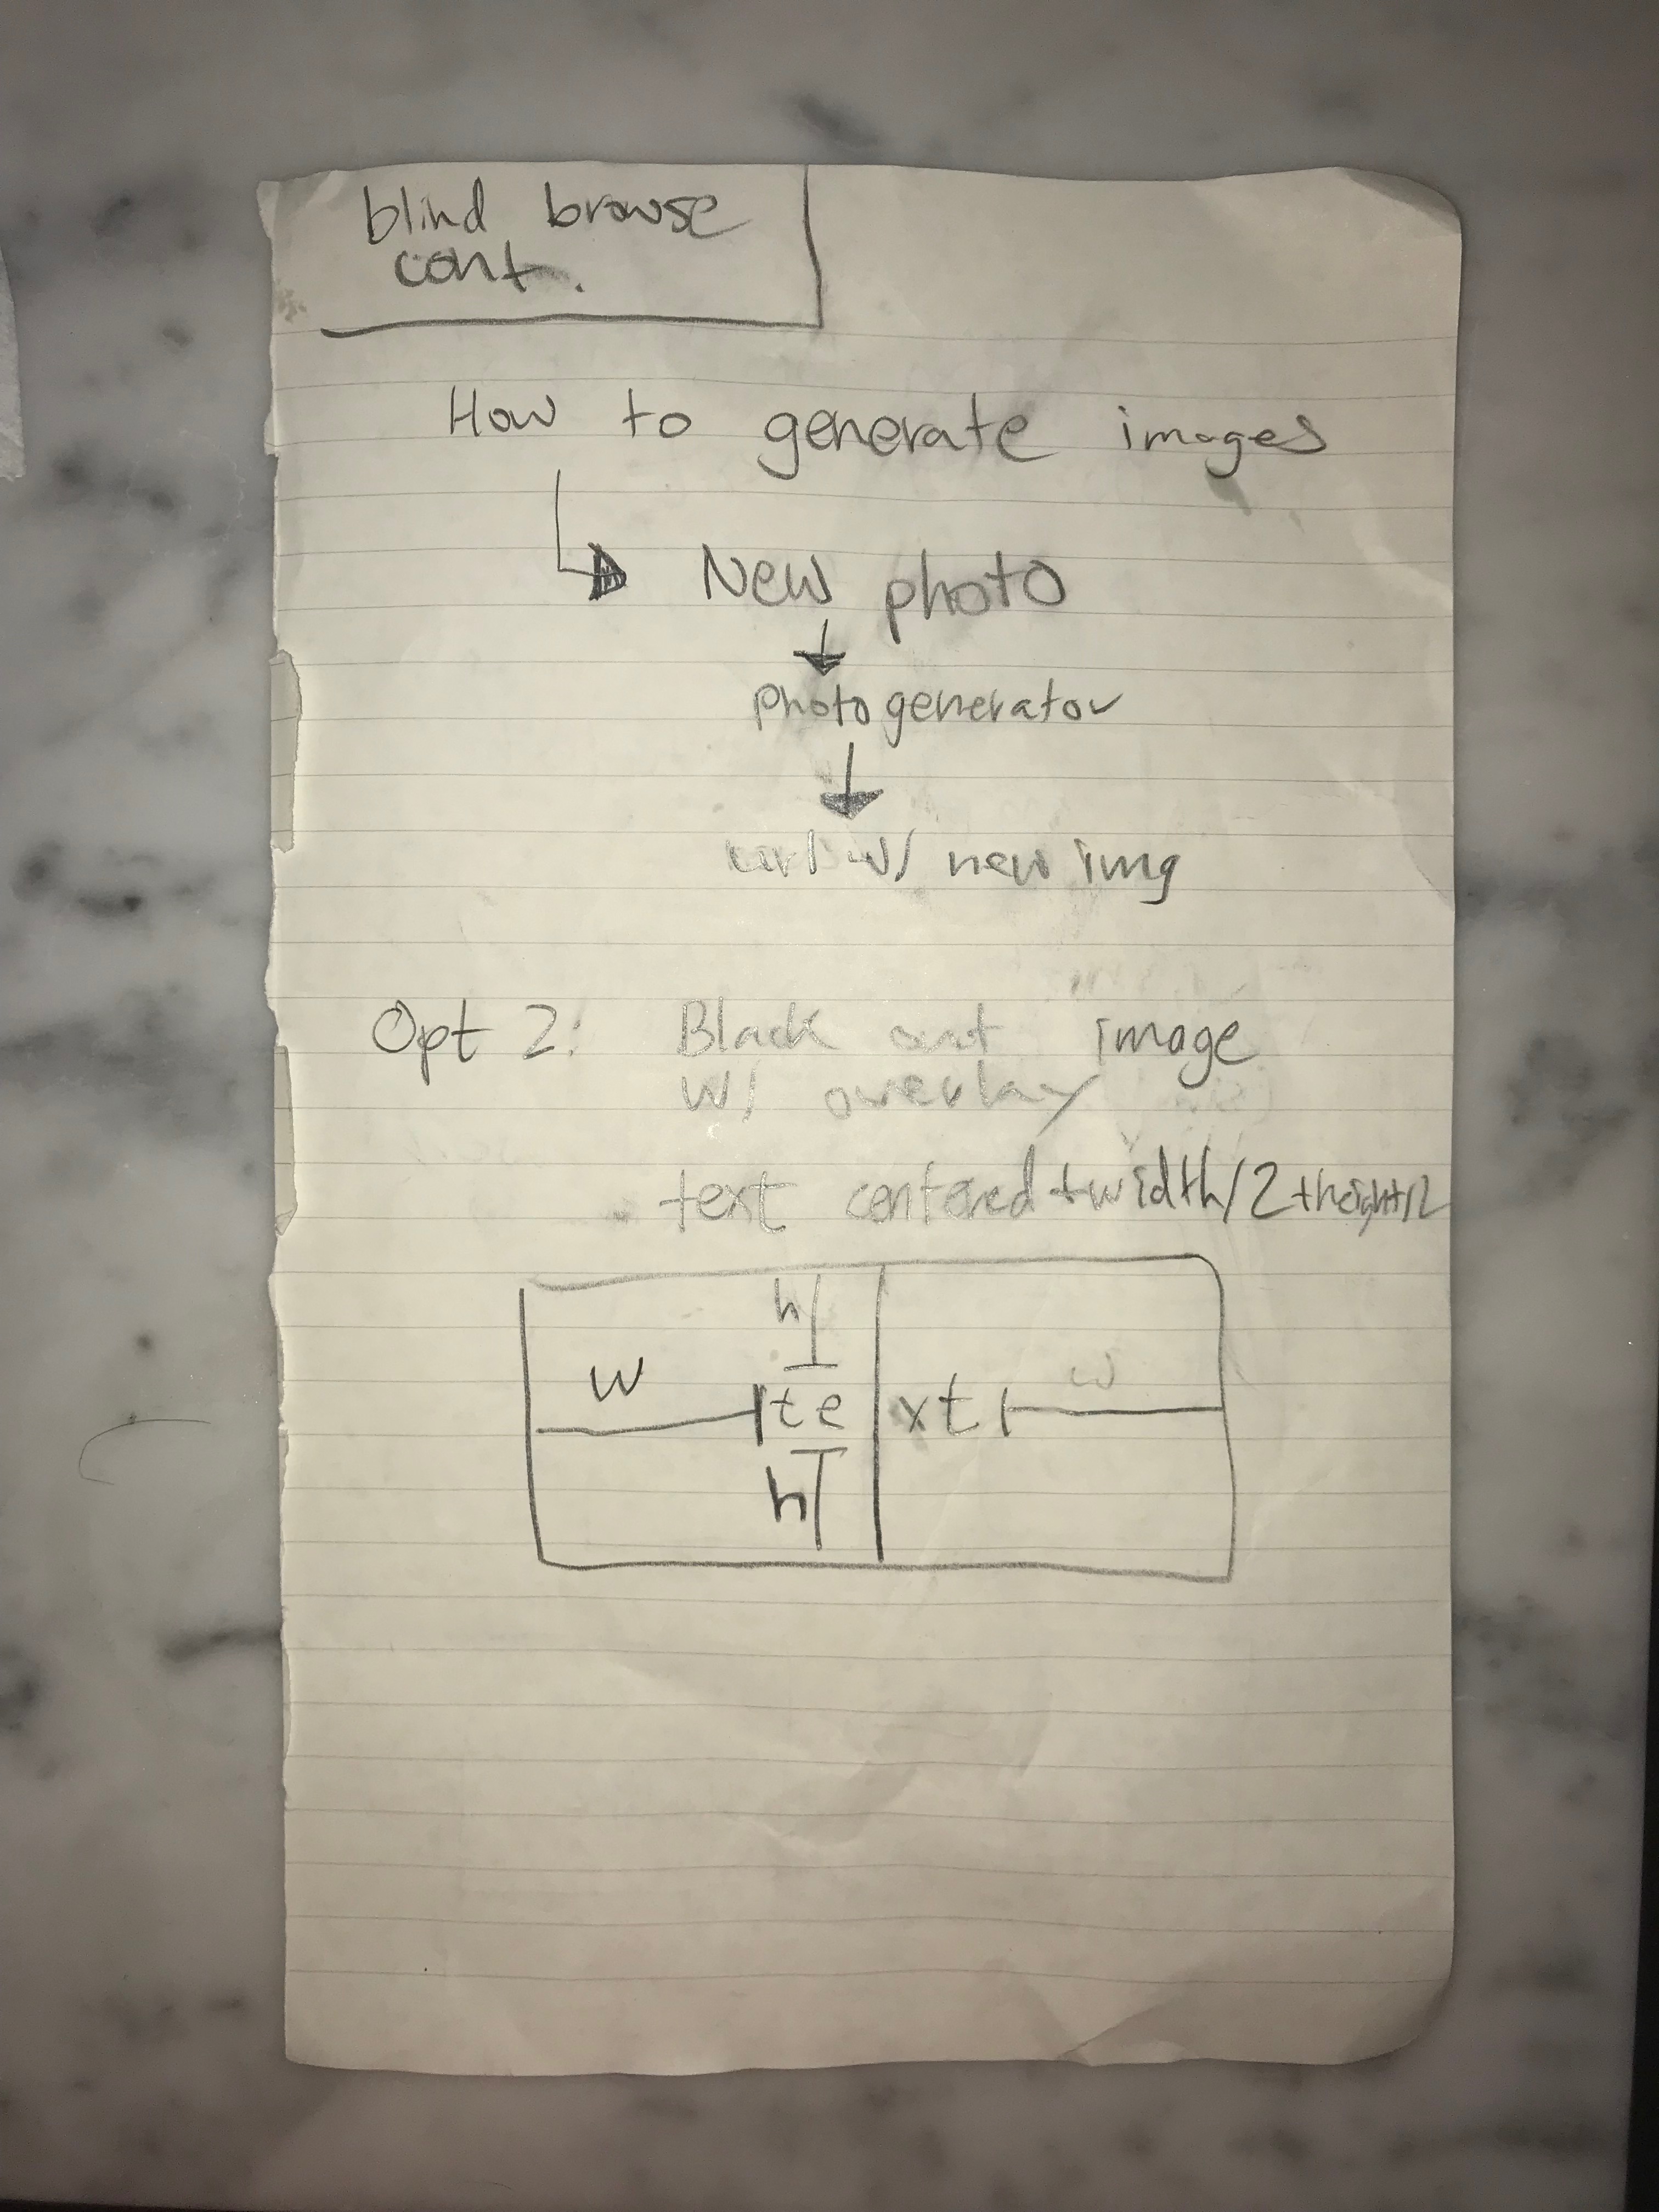 blind browse
cont.
How to generate images
New photo
photo generator
url w/ new img
Opt 2: Black out image
w/ overlay
text centered + width/2 + height/2
h
w w
te xt
h